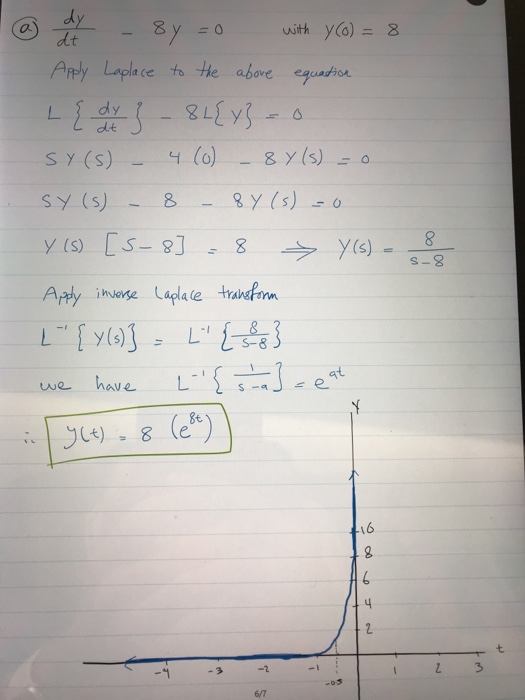 (a) dy/dt - 8y = 0 with y(0) = 8
Apply Laplace to the above equation
L { dy/dt } - 8L{y} = 0
SY(s) - 4(0) - 8Y(s) = 0
SY(s) - 8 - 8Y(s) = 0
Y(s) [S-8] = 8 ⇒ Y(s) = 8/(s-8)
Apply inverse Laplace transform
L⁻¹ { Y(s) } = L⁻¹ { 8/(s-8) }
we have L⁻¹ { 1/(s-a) } = e^at
∴ y(t) = 8 (e^8t)
Y
16
8
6
4
2
t
-4 -3 -2 -1 1 2 3
-0.5
6/7